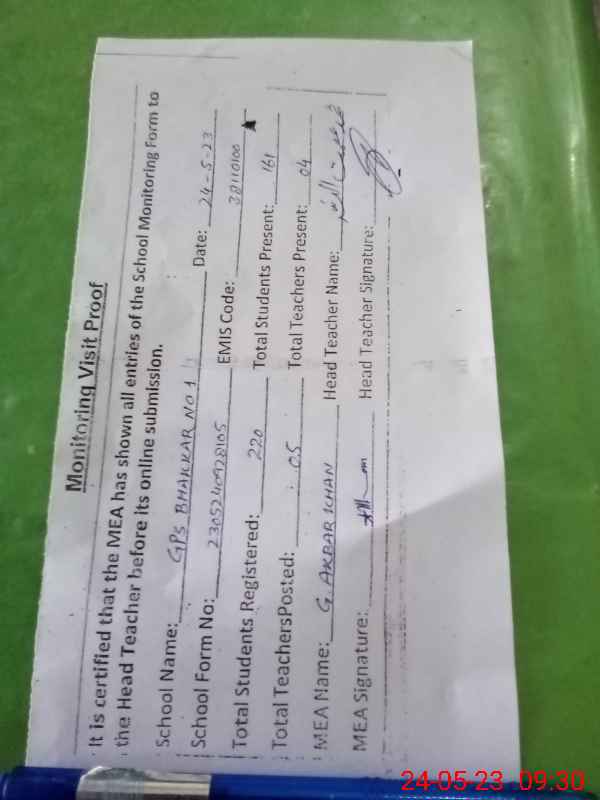 Monitoring Visit Proof
It is certified that the MEA has shown all entries of the School Monitoring Form to
the Head Teacher before its online submission.
School Name: GPS BHAKKAR NO 1 Date: 24-5-23
School Form No: 2305240928105 EMIS Code: 38110100
Total Students Registered: 220 Total Students Present: 161
Total TeachersPosted: 05 Total Teachers Present: 04
MEA Name: G. AKBAR KHAN Head Teacher Name:
MEA Signature: Head Teacher Signature:
24-05-23 09:30